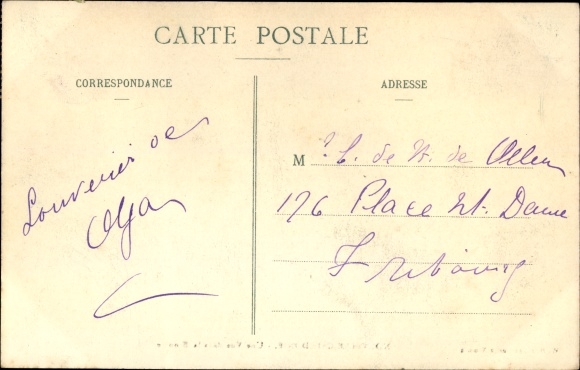 CARTE POSTALE
CORRESPONDANCE
ADRESSE
Louvenir de
Olga
M
de
de
176 Place Nt. Dame
Fribourg